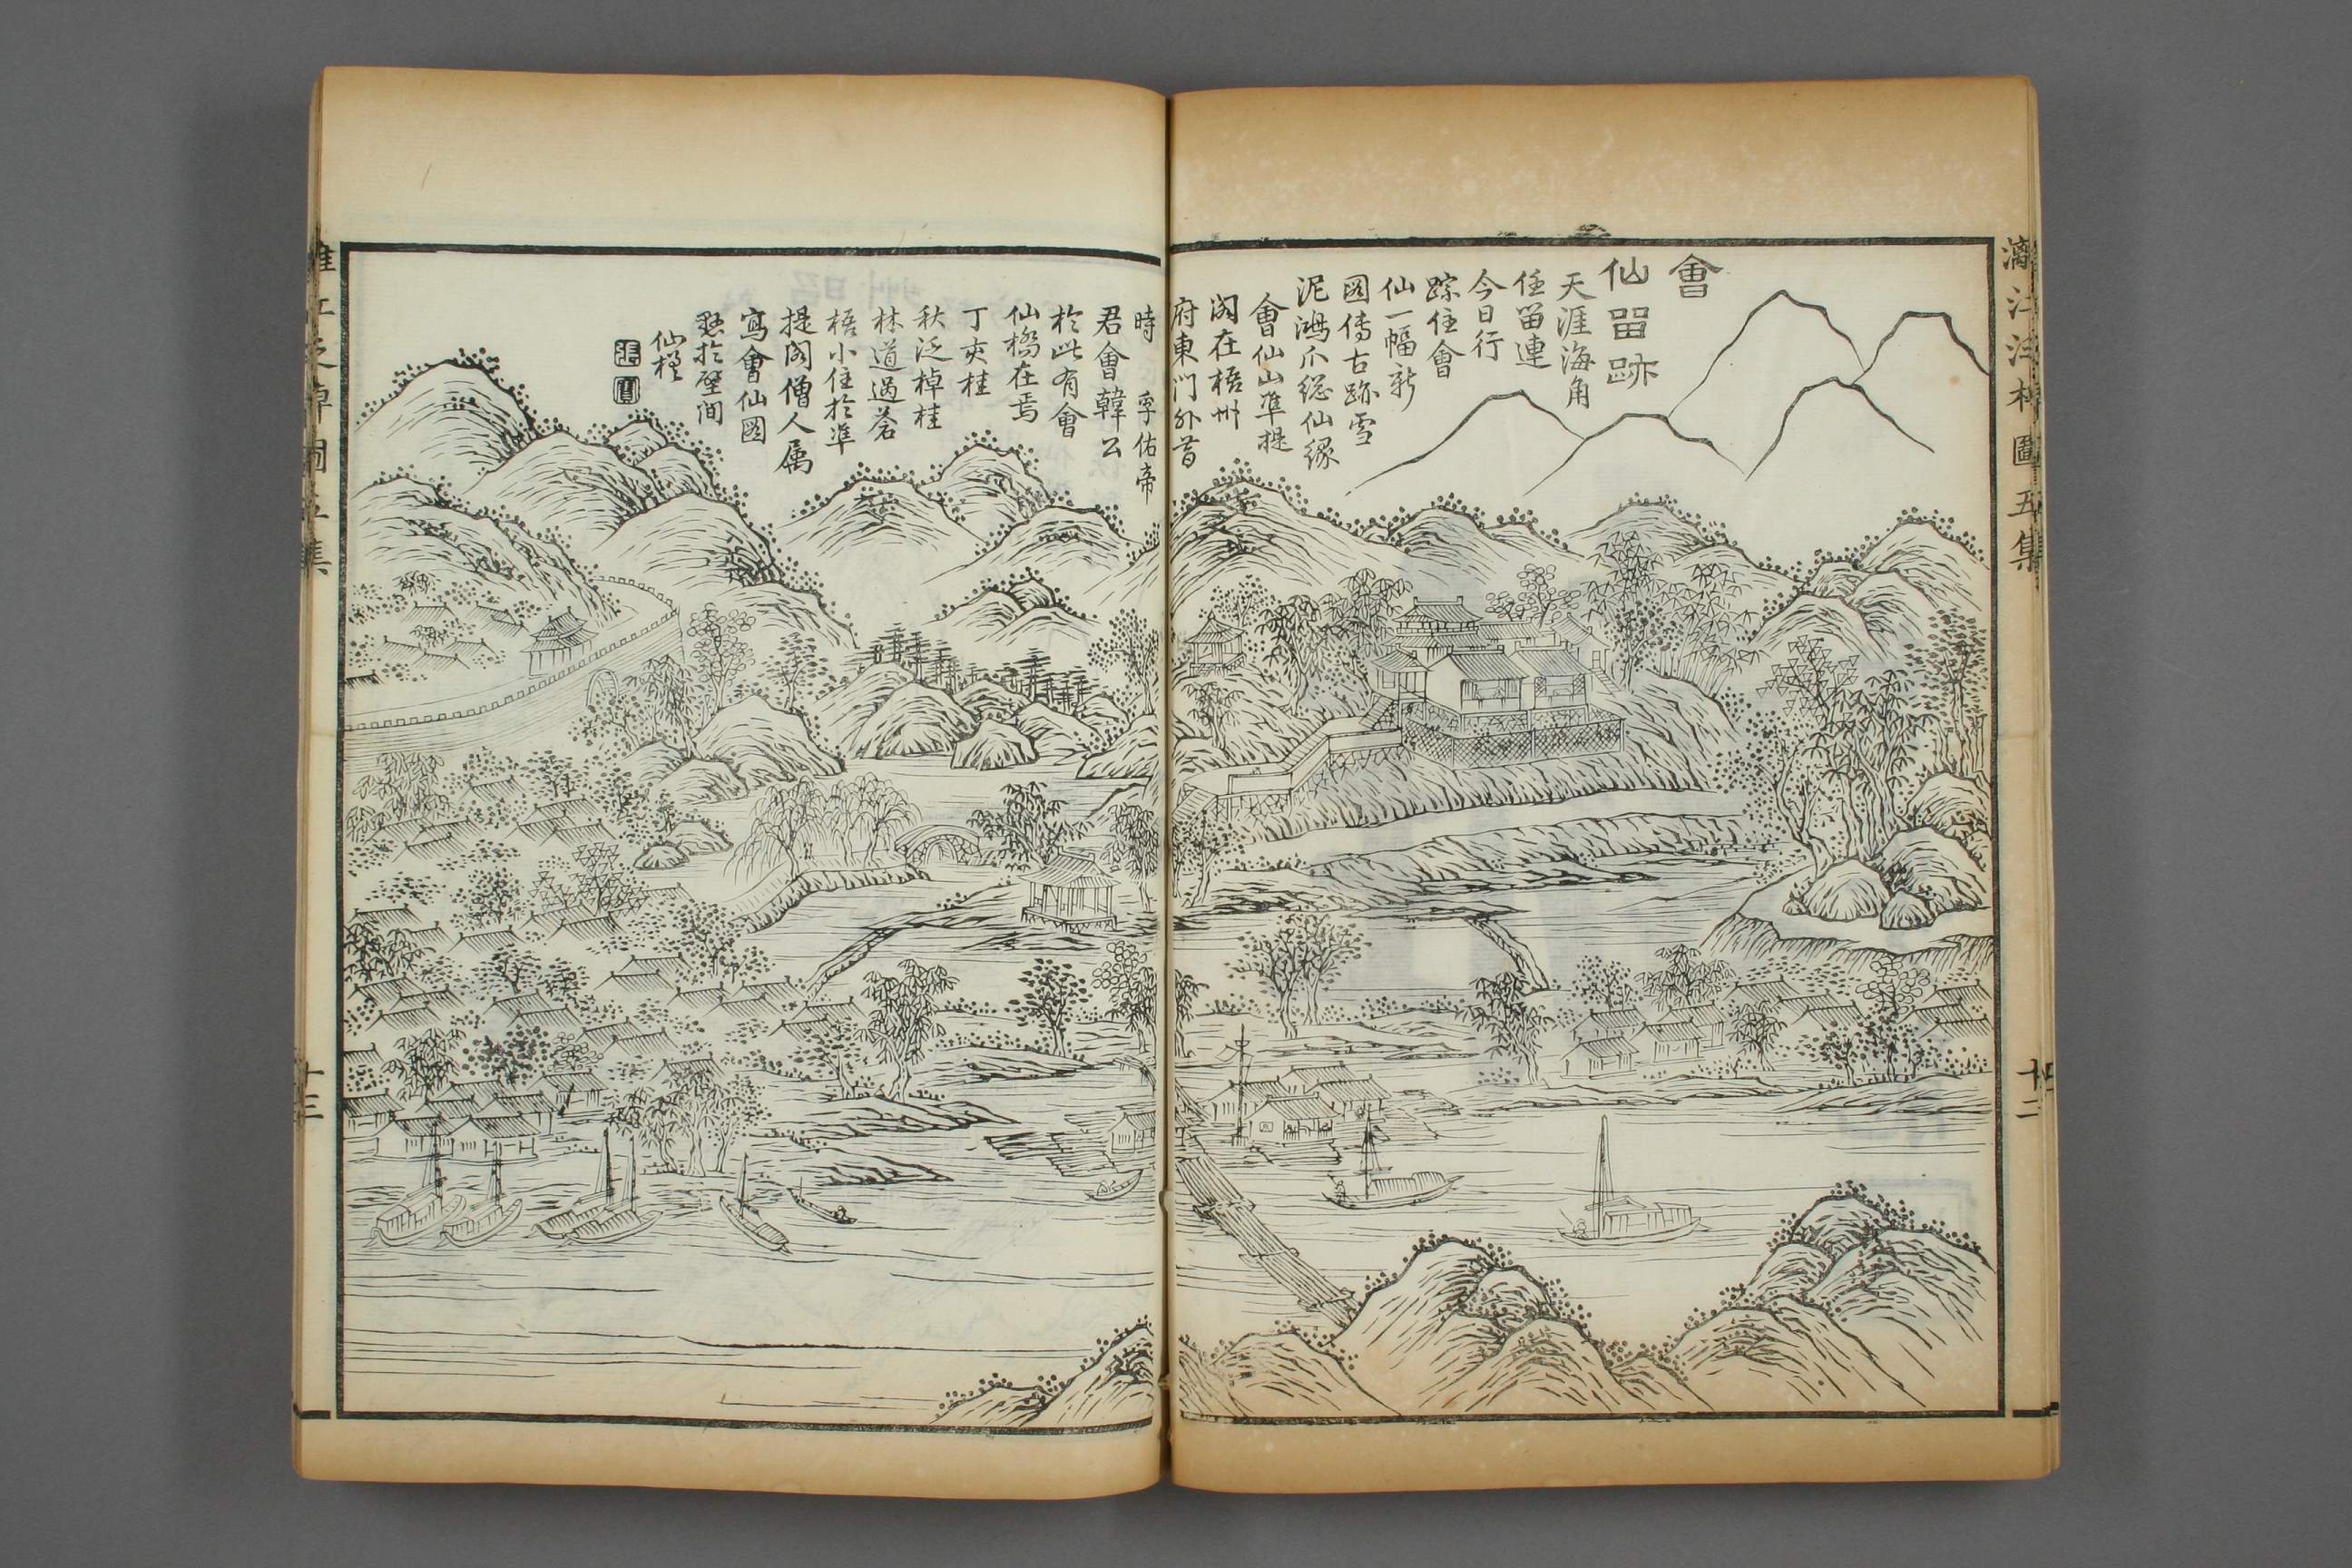 會
仙畱跡
天涯海角
任畱連
今日行
踪住會
仙一幅新
圖傳古跡雪
泥鴻爪總仙緣
會仙山準提
閣在梧州
府東門外昔
時 李佑帝
君會韓公
於此有會
仙橋在焉
丁亥桂
秋泛棹桂
林道過蒼
梧小住於準
提閣僧人屬
寫會仙圖
懸於壁間
仙槎
張
寶
漓江泛棹圖五集
十二
漓江泛棹圖五集
十三